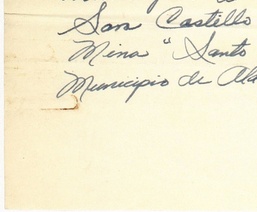 San Castello
Mina " Santo
Municipio de Ala